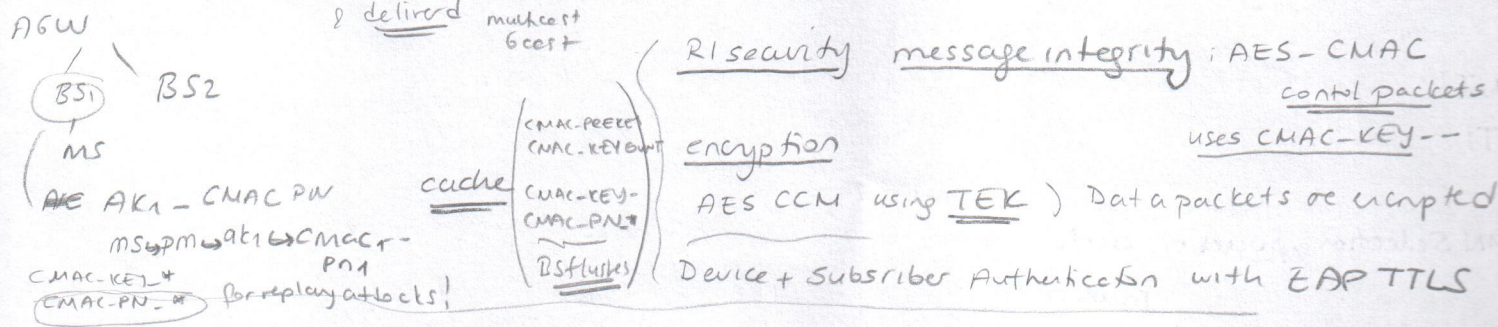 AGW
BS1
BS2
MS
AK1 - CMAC PN
CMAC-KEY_*
CMAC-PN_*
for replay attacks!
& delired
multicast
cache
CMAC-KEY-
CMAC-PN_*
BS flushes
R1 security message integrity : AES-CMAC
contol packets
uses CMAC-KEY--
encryption
AES CCM using TEK ) Data packets are encrypted
Device + Subsriber Authentication with EAP TTLS